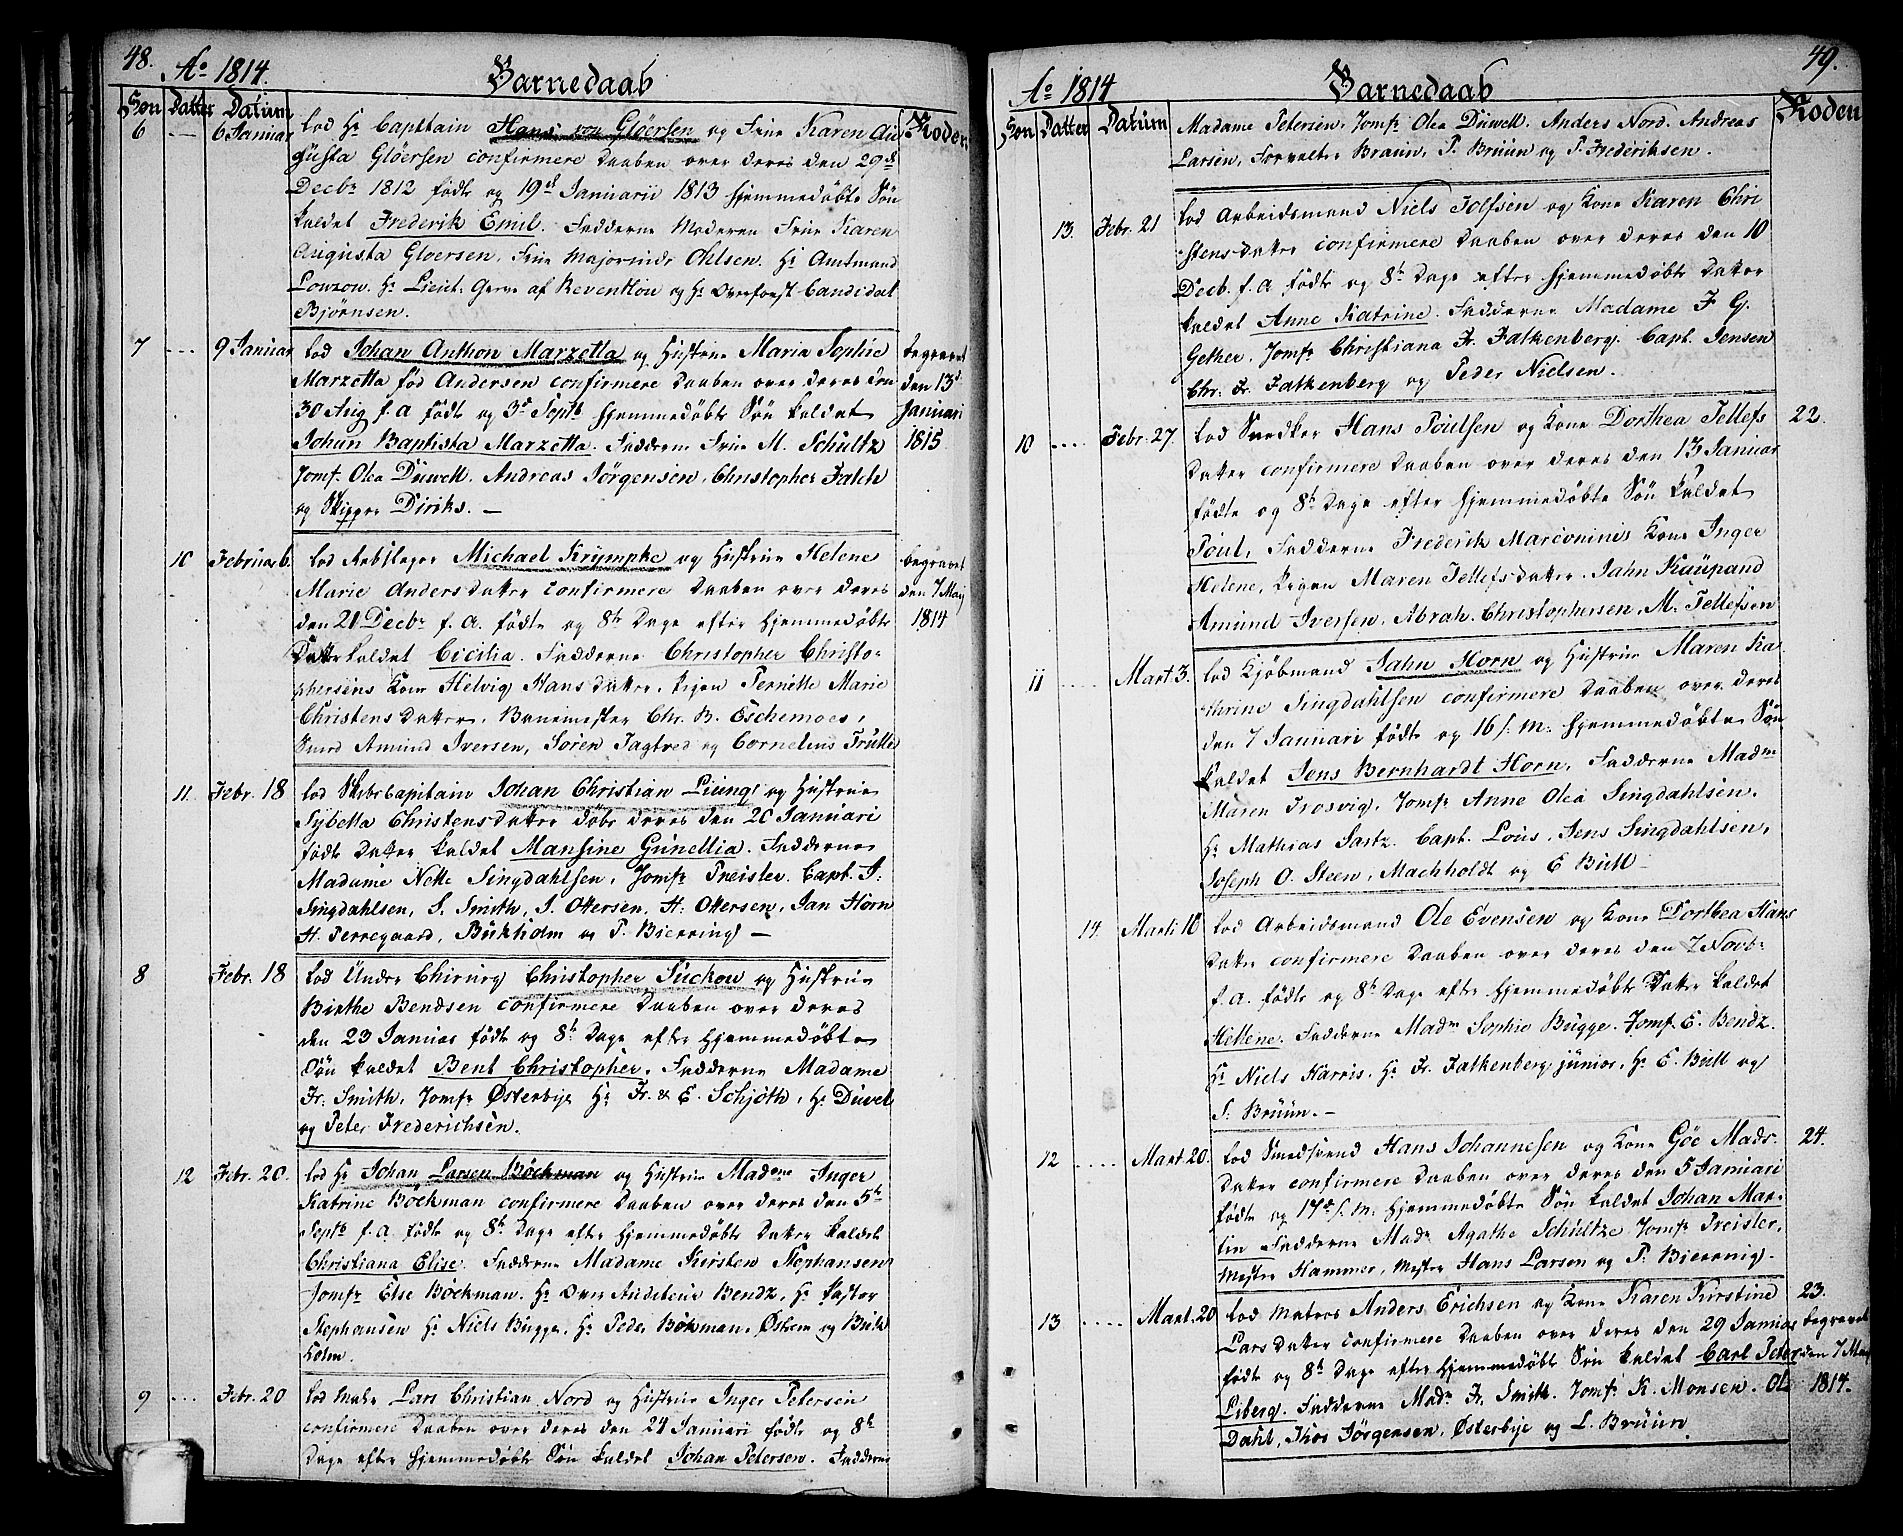 48.
Ao 1814.
Barnedaab
Søn Datter Datum Roden
6 — 6 Januar
lod Hr Capitain Hans von Gløersen og Frue Karen Au
gusta Gløersen confirmere Daaben over deres den 29de
Decbr 1812 fødte og 19de Januarii 1813 hjemmedøbte Søn
kaldet Frederik Emil. Fadderne Moderen Frue Karen
Augusta Gløersen, Frue Majorinde Ohlsen. Hr Amtmand
Lowzow. Hr Lieut. Greve af Reventlou og Hr Overforst Candidat
Bjørnsen.
7 ... 9 Januar
lod Johan Anthon Marzetta og Hustrue Maria Sophie
Marzetta fød Andersen confirmere Daaben over deres den
30 Aug f. a fødte og 3de Septb hjemmedøbte Søn kaldet
Johan Baptista Marzetta. Faddern Frue M. Schultz
Jomfr Olea Düwell. Andreas Jørgensen. Christopher Falch
og Skipper Diriks. —
begravet
den 13de
Januari
1815
10 Februar 6.
lod Rebslager Michael Krympke og Hustrue Helene
Marie Andersdatter confirmere Daaben over deres
den 21 Decbr f. a. fødte og 8te Dage efter hjemmedøbte
Datter kaldet Cicilia. Fadderne Christopher Christo-
phersens Kone Helvig Hansdatter, Pigen Pernille Marie
Christensdatter, Banemester Chr. B. Eschemoes,
Smed Amund Iversen, Søren Jagtved og Cornelius Trulle
begravet
den 7 May
1814
11 Febr. 18
lod SkibsCapitain Johan Christian Liung og Hustrue
Sybella Christensdatter døbe deres den 20 Januari
fødte Datter kaldet Mansine Gunellia. Fadderne
Madame Nette Singdahlsen, Jomfr Preisler. Capt. J.
Singdahlsen, S. Smith, S. Ottersen, H. Ottersen, Jan Horn
H. Perregaard, Bükholm og P. Bierring —
8 Febr. 18
lod Under Chirurg Christopher Suckow og Hustrue
Birthe Bendsen confirmere Daaben over deres
den 23 Januar fødte og 8te Dage efter hjemmedøbte
Søn kaldet Bent Christopher. Fadderne Madame
Fr. Smith, Jomfr Østerbye Hr Fr. & E. Schjøth, Hr Düvel
og Peter Frederichsen.
12 Febr. 20.
lod Hr Johan Larsen Bøckman og Hustrue Madme Inger
Katrine Bøckman confirmere Daaben over deres den 5te
Septb f. a. fødte og 8te Dage efter hjemmedøbte Datter kaldet
Christiana Elise. Fadderne Madame Kirsten Stephansen
Jomfr Else Bøckman. Hr Over Auditeur Bendz, Hr Pastor
Stephansen Hr Niels Bugge, Hr Peder Bøkman, Østrem og Buk
holm.
9 .... Febr. 20
lod Maler Lars Christian Nord og Hustrue Inger Petersen
confirmere Daaben over deres den 24 Januari fødte og 8te
Dage efter hjemmedøbte Søn kaldet Johan Petersen. Fadderne
49.
Ao 1814
Barnedaab
Søn Datter Datum Roden
Madame Petersen, Jomfr Olea Düwell. Anders Nord. Andreas
Larsen, Forvalter Braun, P. Bruun og P. Frederiksen.
13. Febr. 21
lod Arbeidsmand Niels Tolfsen og Kone Karen Chri
stensdatter confirmere Daaben over deres den 10
Decb. f. a fødte og 8te Dage efter hjemmedøbte Datter
kaldet Anne Katrine. Fadderne Madame F G.
Gether. Jomfr Christiana Fr. Falkenberg. Capt. Jensen
Chr. Fr. Falkenberg og Peder Nielsen.
10 .... Febr. 27.
lod Snedker Hans Poulsen og Kone Dorthea Tellefs
datter confirmere Daaben over deres den 13 Januar
fødte og 8te Dage efter hjemmedøbte Søn kaldet
Poul, Fadderne Frederik Marconinis Kone Inger
Helene, Pigen Maren Tellefsdatter. Jahn Kuupand
Amund Iversen, Abrah. Christophersen, M. Tellefsen
22.
11 .... Mart. 3.
lod Kjøbmand Jahn Horn og Hustrue Maren Ka-
thrine Singdahlsen confirmere Daaben over deres
den 7 Januari fødte og 16 s. m. hjemmedøbte Søn
kaldet Jens Bernhardt Horn, Fadderne Madm
Maren Trosvig, Jomfr Anne Olea Singdahlsen.
Hr Mathias Sartz. Capt. Lous. Jens Singdahlsen,
Joseph O. Steen, Machholdt og E Bull —
14. Marti 16
lod Arbeidsmand Ole Evensen og Kone Dorthea Hans
datter confirmere Daaben over deres den 7 Novbr
f. a. fødte og 8te Dage efter hjemmedøbte Datter kaldet
Hellene. Fadderne Madm Sophie Bugge. Jomf. E. Bendz.
Hr Niels Harris. Hr Fr. Falkenberg, junior, Hr E. Bull og
S. Bruun. —
12 .... Mart. 20.
lod Smedsvend Hans Johannesen og Kone Gøe Mads-
datter confirmere Daaben over deres den 5 Januari
fødte og 17de s. m. hjemmedøbte Søn kaldet Johan Mar-
tin Fadderne Madm Agathe Schultze Jomfr Preisler,
Mester Hammer, Mester Hans Larsen og P. Bierring.
24.
13 .... Mart. 20
lod Matros Anders Erichsen og Kone Karen Kirstine
Larsdatter confirmere Daaben over deres den 29 Januar
fødte og 8te Dage efter hjemmedøbte Søn kaldet Carl Peter
Liberg. Fadderne Madm Fr. Smith. Jomfr K. Monsen. Ole
Dahl, Thor Jørgensen, Østerbye og L. Bruun.
23.
begravet
den 7 May
1814.